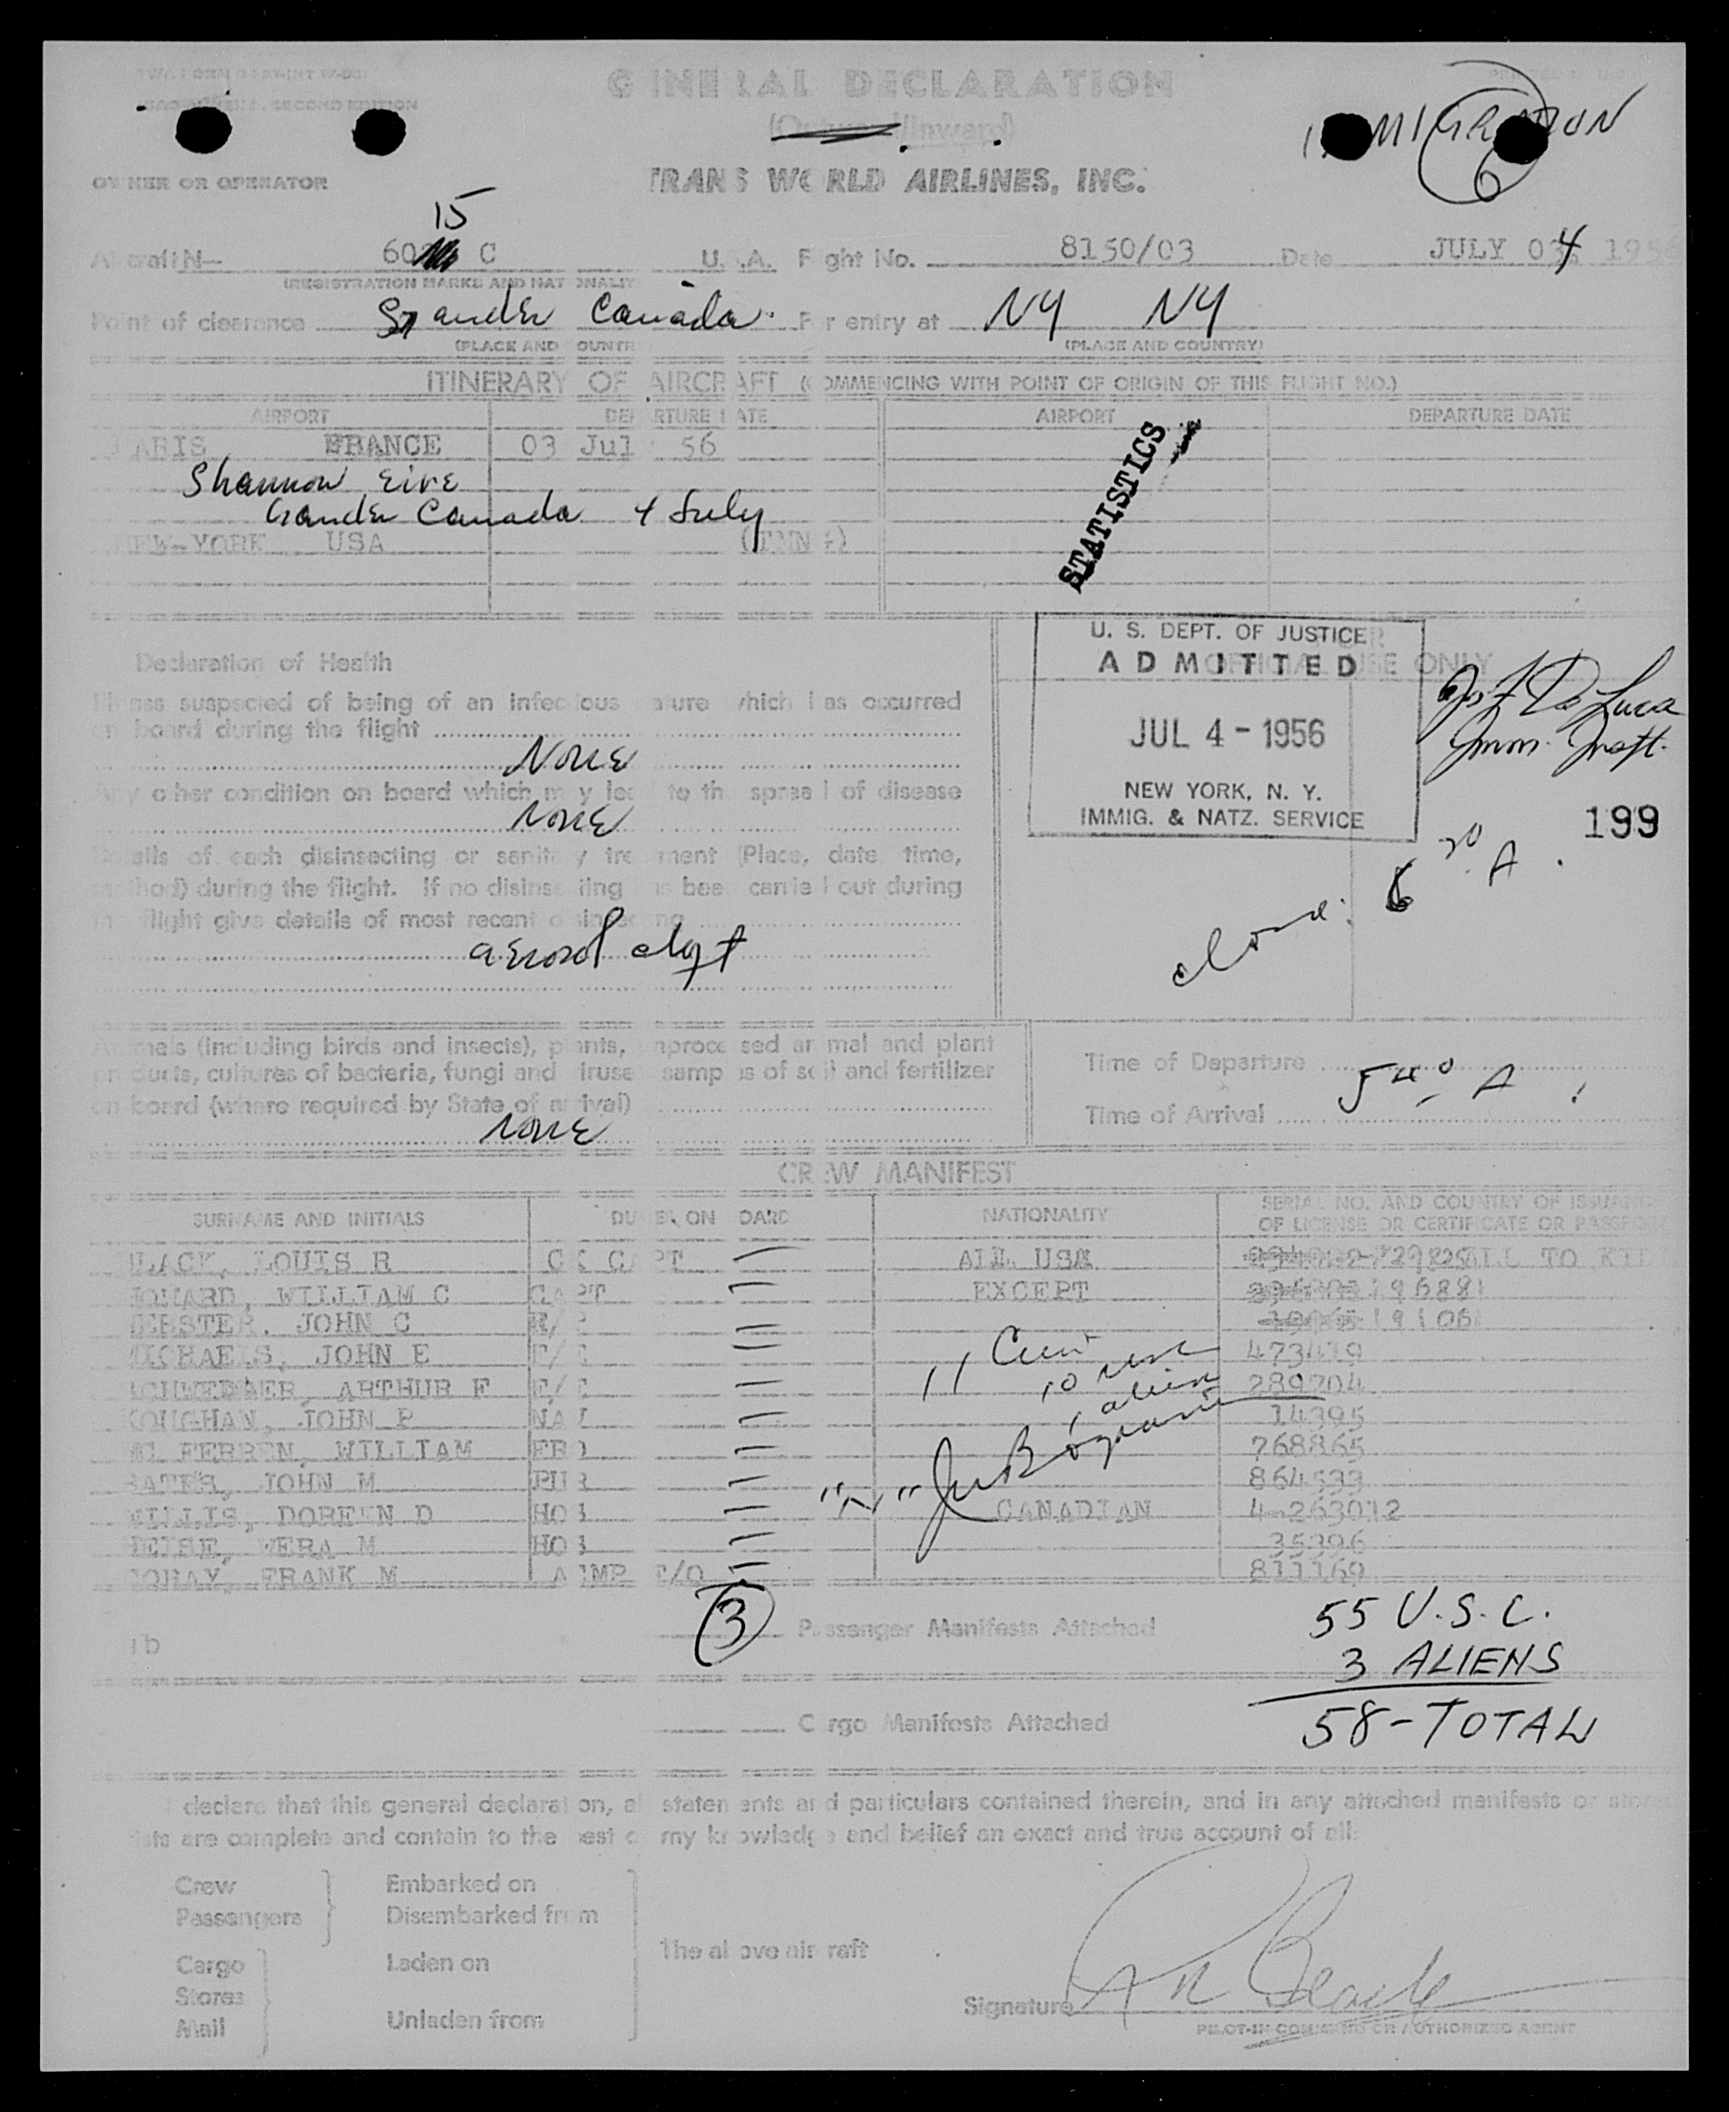 GENERAL DECLARATION
(Outward/Inward)
IMMIGRATION
6
OWNER OR OPERATOR TRANS WORLD AIRLINES, INC.
15
Aircraft N— 60 C U.S.A. Flight No. 8150/03 Date JULY 4 1956
(REGISTRATION MARKS AND NATIONALITY)
Point of clearance Gander Canada For entry at NY NY
(PLACE AND COUNTRY) (PLACE AND COUNTRY)
ITINERARY OF AIRCRAFT (COMMENCING WITH POINT OF ORIGIN OF THIS FLIGHT NO.)
AIRPORT DEPARTURE DATE AIRPORT DEPARTURE DATE
PARIS FRANCE 03 Jul 56
Shannon Eire
Gander Canada 4 July
NEW-YORK USA
STATISTICS
U. S. DEPT. OF JUSTICE
ADMITTED
JUL 4 - 1956
NEW YORK, N. Y.
IMMIG. & NATZ. SERVICE
FOR OFFICIAL USE ONLY
Jos F De Luca
Imm. Inspt.
199
Declaration of Health
Illness suspected of being of an infectious nature which has occurred
on board during the flight
None
Any other condition on board which may lead to the spread of disease
None
Details of each disinsecting or sanitary treatment (Place, date, time,
method) during the flight. If no disinsecting has been carried out during
the flight give details of most recent disinsecting
aerosol
Animals (including birds and insects), plants, unprocessed animal and plant
products, cultures of bacteria, fungi and viruses, samples of soil and fertilizer
on board (where required by State of arrival)
None
Time of Departure
5 40 A
Time of Arrival
CREW MANIFEST
SURNAME AND INITIALS DUTIES ON BOARD NATIONALITY SERIAL NO. AND COUNTRY OF ISSUANCE
OF LICENSE OR CERTIFICATE OR PASSPORT
BLACK, LOUIS R CK CAPT ALL USA
HOWARD, WILLIAM C CAPT EXCEPT
WEBSTER, JOHN C
MICHAELS, JOHN E
ARTHUR F 289704
JOHN P NAV 14395
MC FERREN, WILLIAM 768865
BATES, JOHN M PUR 864533
WILLIS, DOREEN D HOS CANADIAN 4-263012
VERA M HOS 35396
FRANK M 811169
11 Crew
10 usc
1 alien
3 Passenger Manifests Attached
55 U.S.C.
3 ALIENS
58-TOTAL
Cargo Manifests Attached
I declare that this general declaration, all statements and particulars contained therein, and in any attached manifests or stores
lists are complete and contain to the best of my knowledge and belief an exact and true account of all:
Crew
Passengers
Embarked on
Disembarked from
Cargo
Stores
Mail
Laden on
Unladen from
The above aircraft
Signature
PILOT-IN-COMMAND OR AUTHORIZED AGENT